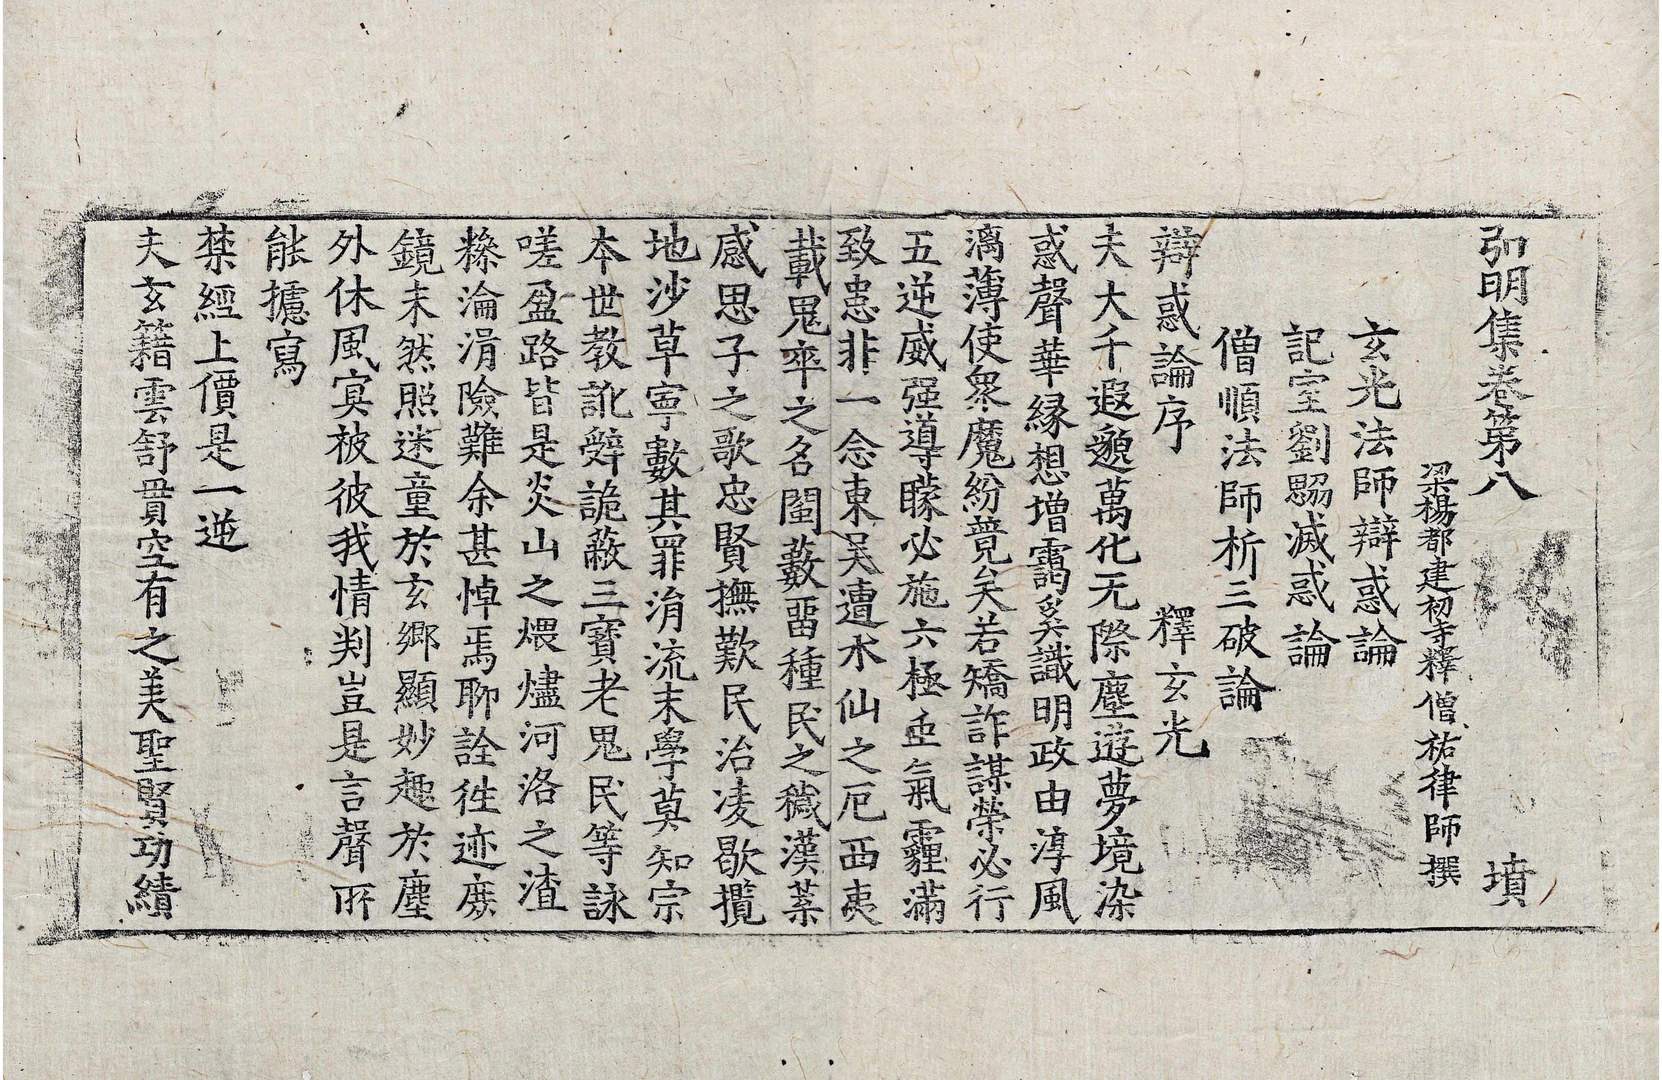 弘明集卷第八　墳
梁楊都建初寺釋僧祐律師撰
玄光法師辯惑論
記室劉勰滅惑論
僧順法師析三破論
辯惑論序　釋玄光
夫大千遐邈萬化无際塵遊夢境染
惑聲華縁想增靄奚識明政由淳風
漓薄使衆魔紛競矣若矯詐謀榮必行
五逆威强導矇必施六極虫氣霾滿
致患非一念東吴遭水仙之厄西夷
載鬼卒之名閩藪留種民之穢漢葉
感思子之歌忠賢撫歎民治凌歇攬
地沙草寧數其罪涓流末學莫知宗
本世教訛辭詭蔽三寶老鬼民等詠
嗟盈路皆是炎山之煨燼河洛之渣
糝淪湑險難余甚悼焉聊詮往迹庶
鏡未然照迷童於玄鄉顯妙趣於塵
外休風冥被彼我情判豈是言聲所
能攄寫
禁經上價是一逆
夫玄籍雲舒貫空有之美聖賢功績